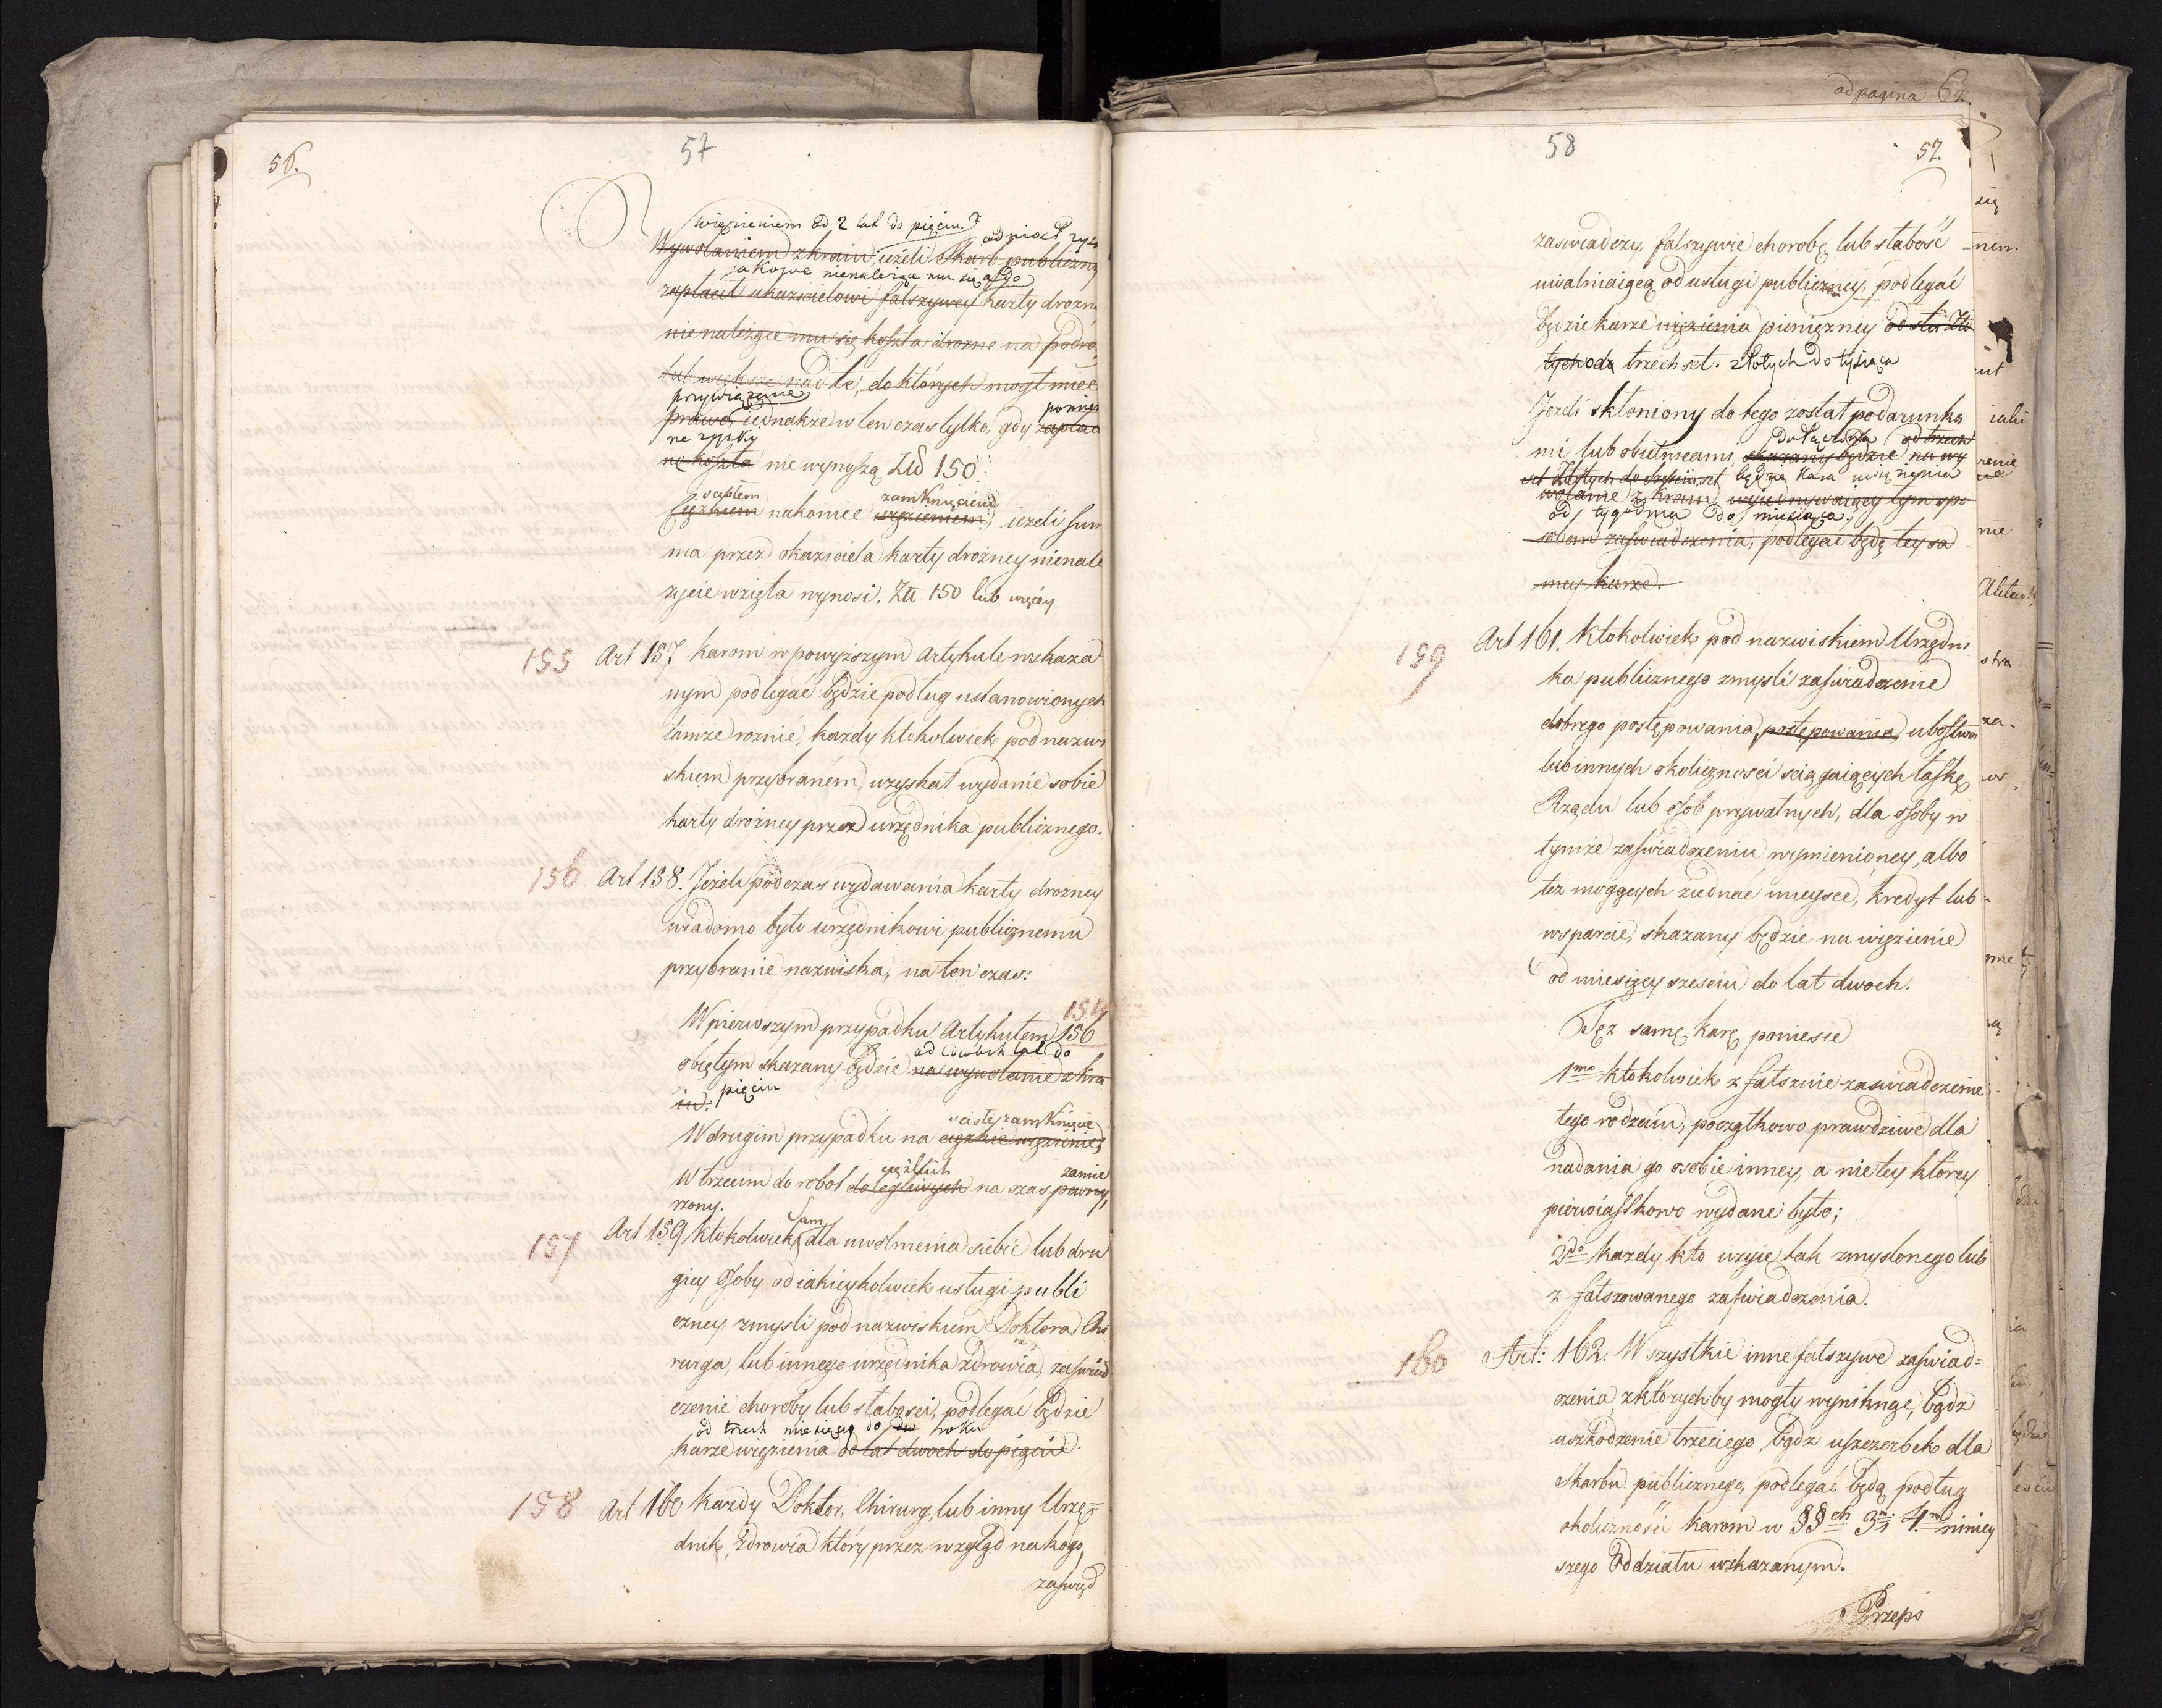 56.
57
więzieniem od 2 lat do pięciu
odniosł zysk
Wywołaniem z kraiu, ieżeli Skarb publiczny
jakowe nienależące mu się
zapłacił ukazicielowi fałszywey karty drożney
nienależące mu się koszta drożne na podróż
lub większe nad te, do których mogł mieć
przywiązane
prawo, iednakże w ten czas tylko, gdy
ne zyski
koszta nie wynoszą Złł 150.
scisłem zamknięciem
Cięzkiem nakoniec więzieniem, ieżeli sum
ma przez okaziciela karty drożney nienale
życie wzięta wynosi. Złł 150 lub więcey.
155 Art 157 Karom w powyższym Artykule wskaza
nym podlegać będzie podług ustanowionych
tamże rożnic, każdy ktokolwiek pod nazwi
skiem przybranem, uzyskał wydanie sobie
karty drożney przez urzędnika publicznego.
156 Art 158. Jeżeli podczas wydawania karty drożney
wiadomo było urzędnikowi publicznemu
przybranie nazwiska, na ten czas:
154
W pierwszym przypadku Artykułem 156
od dwóch lat do
obiętym skazany będzie na wywołanie z kra
iu. pięciu
scisłe zamknięcie
W drugim przypadku na cięzkie więzienie,
ciężkich zamie
W trzecim do robot dolegliwych na czas pewny,
rzony.
sam
157 Art 159 Ktokolwiek dla uwolnienia siebie lub dru
giey Osoby od iakieykolwiek usługi publi
czney, zmysli pod nazwiskiem Doktora, Chi
rurga, lub innego urzędnika zdrowia, zaswiad
czenie choroby lub słabości, podlegać będzie
od trzech miesięcy do roku
karze więzienia od lat dwoch do pięciu.
158 Art 160 Każdy Doktor, Chirurg, lub inny Urzę-
dnik, zdrowia który przez wzgląd na kogo,
zaswiad
od pagina 62.
58
57.
zaswiadczy, fałszywie chorobę lub słabość
uwalniaiącą od usługi publiczney, podlegać
będzie karze więzienia pieniężney od stu Zło
tych do trzech set. złotych do tysiąca
Jeżeli skłoniony do tego został podarunka
dołączoną od trzech
mi lub obietnicami, skazany będzie na wy
set Złotych do będzie kara więzienia
wołanie z kraiu
od tygodnia do miesiąca.
sobem zaswiadczenia, podlegać będą tey sa
mey karze.
159 Art 161. Ktokolwiek pod nazwiskiem Urzędni
ka publicznego zmysli zaswiadczenie
dobrego postępowania, postępowania, ubostwa
lub innych okoliczności sciągaiących łaskę
Rządu lub osob prywatnych, dla osoby w
tymże zaswiadczeniu wymienioney, albo
tez mogących ziednać mieysce, kredyt lub
wsparcie, skazany będzie na więzienie
od miesięcy szesciu do lat dwoch.
Tęż samę karę poniesie
1mo ktokolwiek z fałszuie zaswiadczenie
tego rodzaiu, początkowo prawdziwe dla
nadania go osobie inney, a nie tey ktorey
pierwiastkowo wydane było;
2do każdy kto użyie tak zmyslonego lub
z fałszowanego zaswiadczenia.
160 Art: 162. Wszystkie inne fałszywe zaswiad=
czenia z których by mogły wyniknąć, bądz
uszkodzenie trzeciego, bądz uszczerbek dla
Skarbu publicznego, podlegać będą podług
okoliczności karom w §§ch 3m 4m niniey
szego Oddziału wskazanym.
Przepi